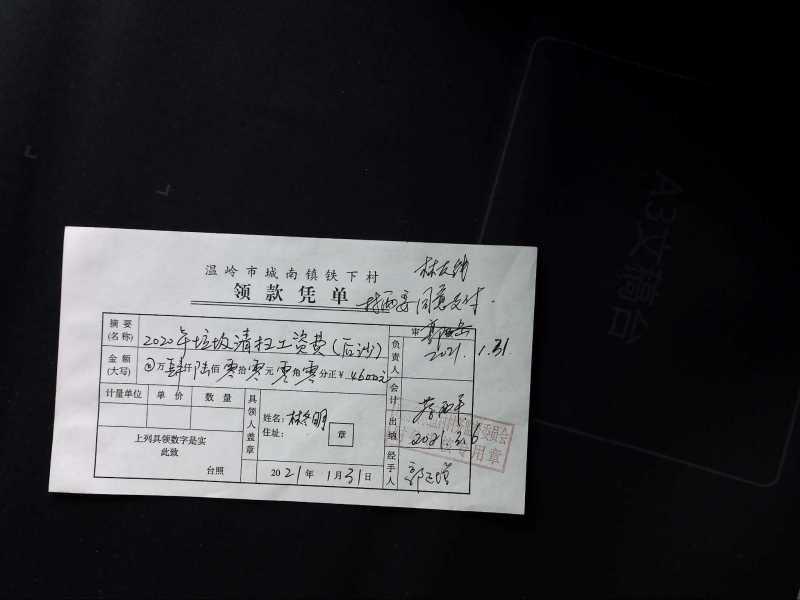 温岭市城南镇铁下村
领款凭单
同意支付.
摘要
(名称)
2020年垃圾清扫工资费(后沙)
负责人
审
2021.1.31.
金额
(大写)
万肆仟陆佰零拾零元零角零分正￥4600元
计量单位 单价 数量
具领人盖章
姓名:
住址:
章
会计
出纳
2021.3.6
专用章
上列具领数字是实
此致
台照
2021年1月31日
经手人